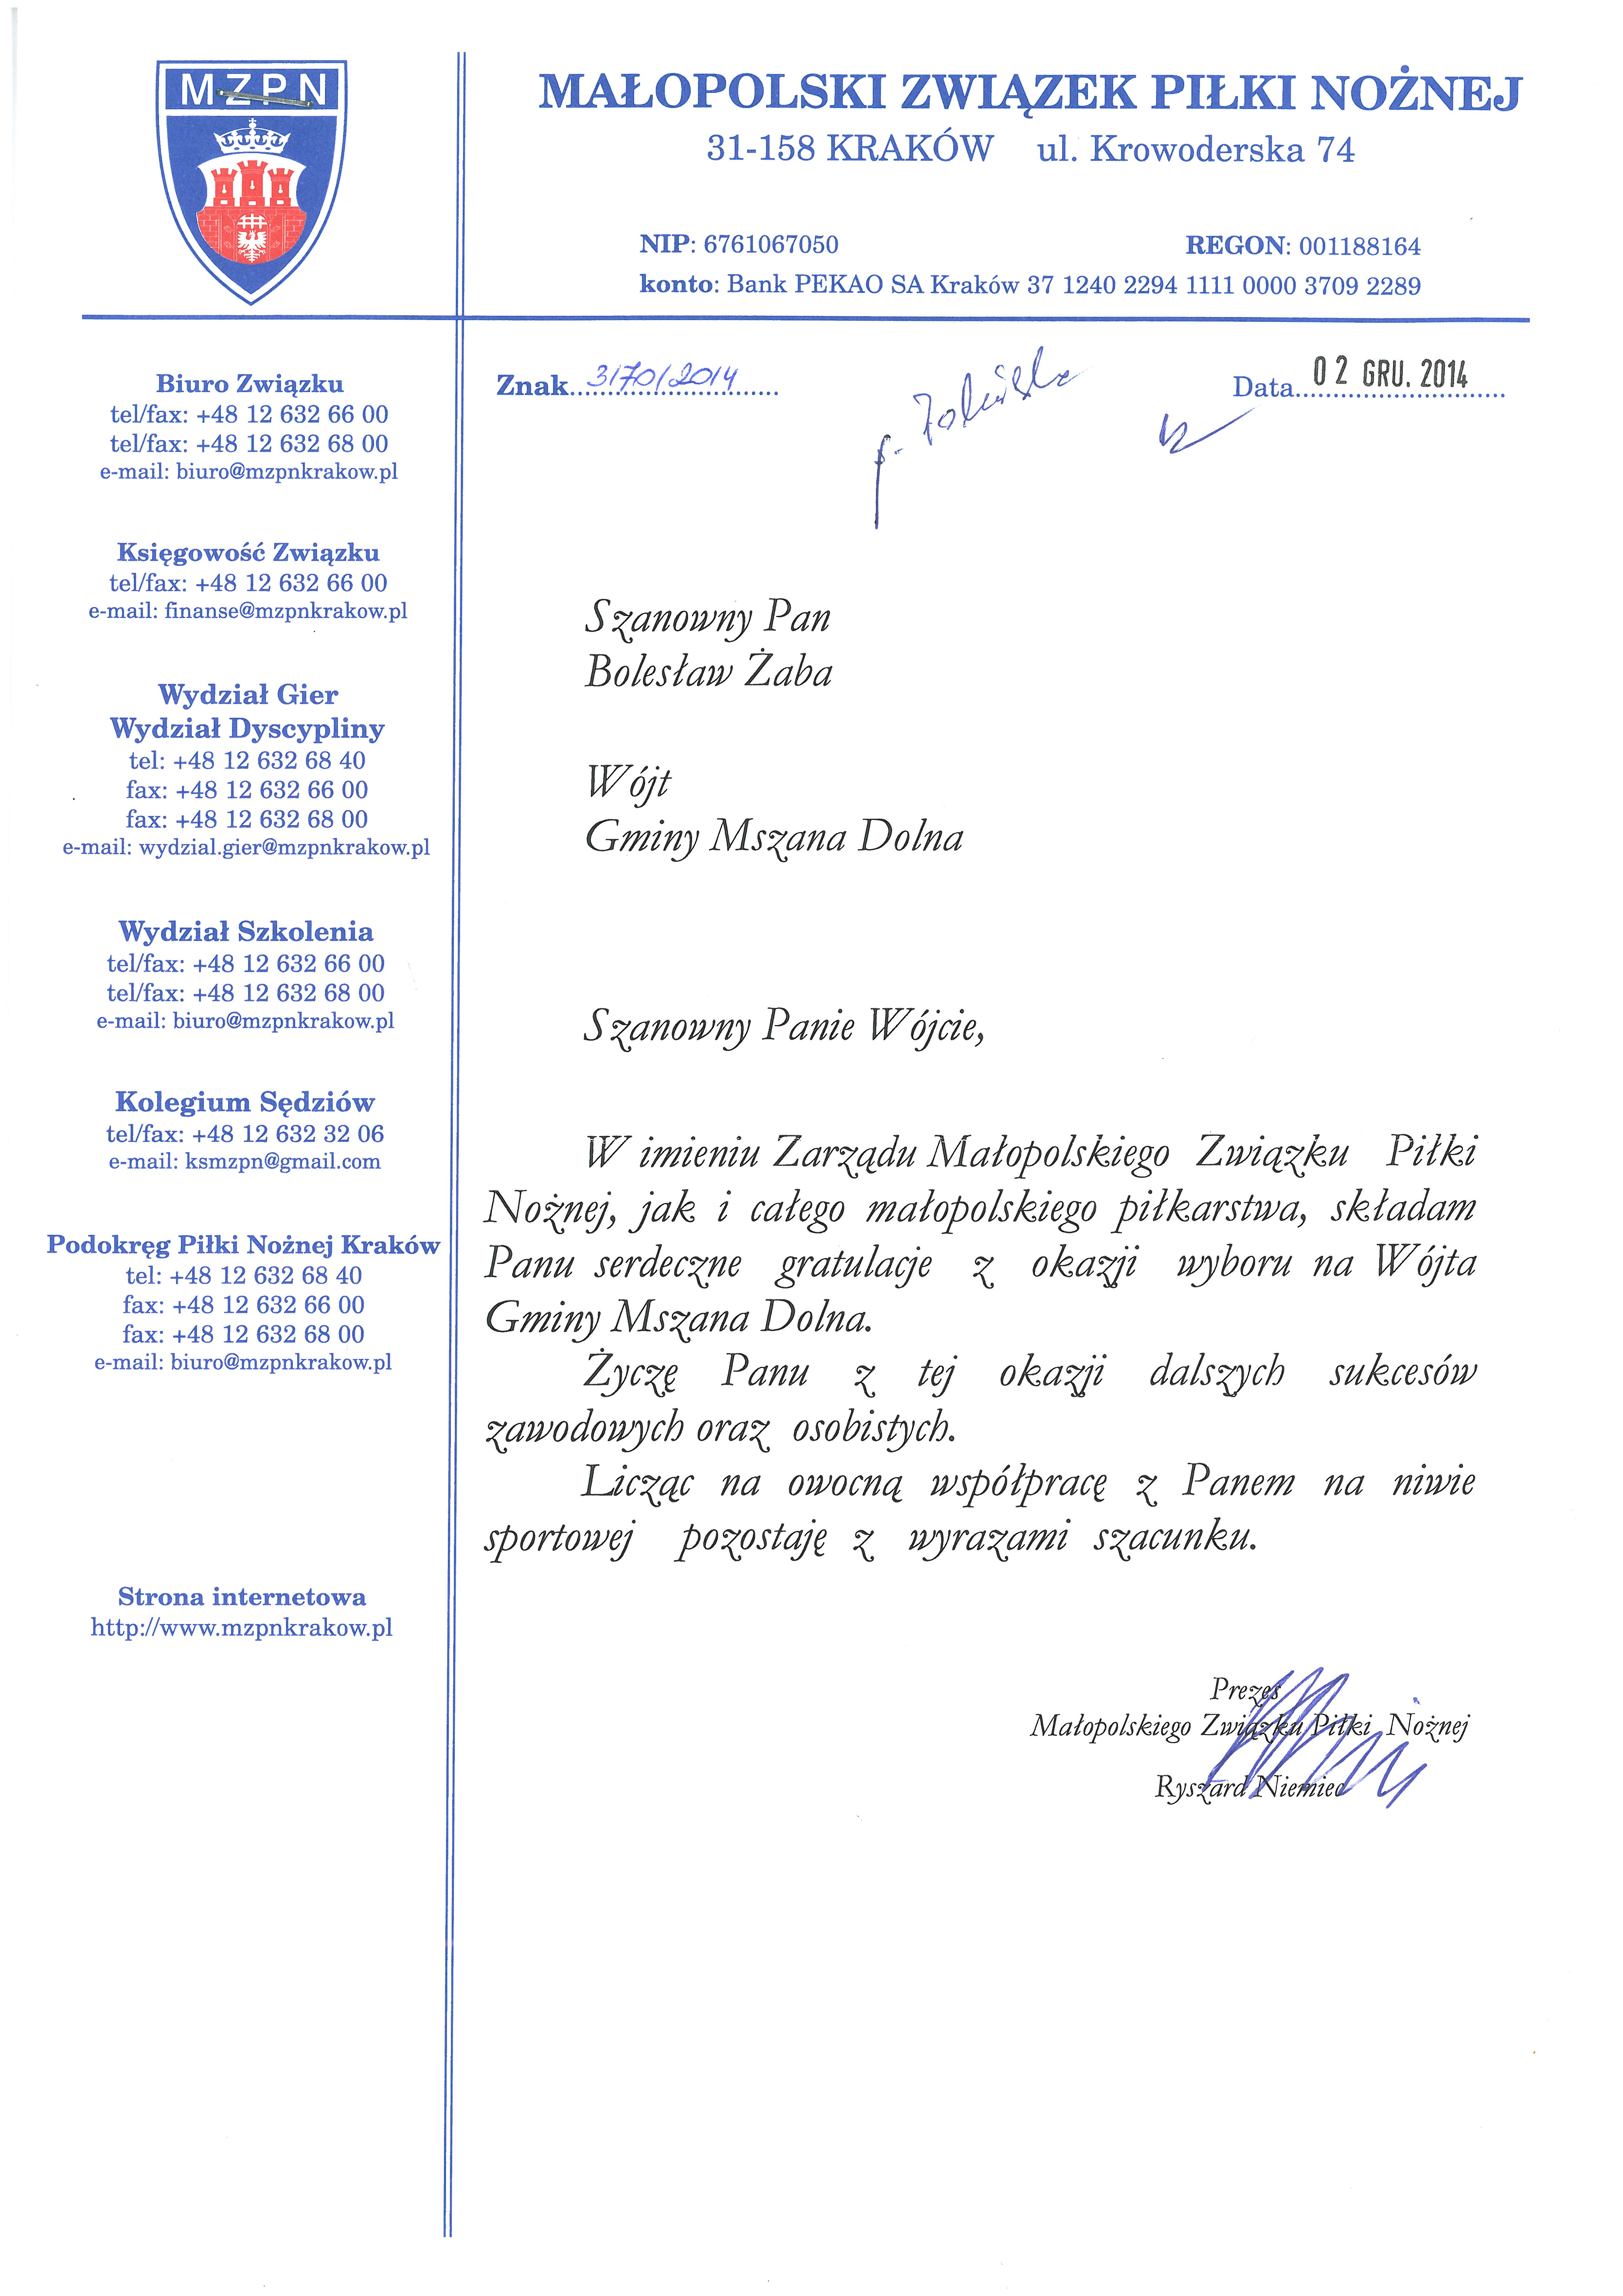 MZPN
MAŁOPOLSKI ZWIĄZEK PIŁKI NOŻNEJ
31-158 KRAKÓW ul. Krowoderska 74
NIP: 6761067050 REGON: 001188164
konto: Bank PEKAO SA Kraków 37 1240 2294 1111 0000 3709 2289
Biuro Związku
tel/fax: +48 12 632 66 00
tel/fax: +48 12 632 68 00
e-mail: biuro@mzpnkrakow.pl
Księgowość Związku
tel/fax: +48 12 632 66 00
e-mail: finanse@mzpnkrakow.pl
Wydział Gier
Wydział Dyscypliny
tel: +48 12 632 68 40
fax: +48 12 632 66 00
fax: +48 12 632 68 00
e-mail: wydzial.gier@mzpnkrakow.pl
Wydział Szkolenia
tel/fax: +48 12 632 66 00
tel/fax: +48 12 632 68 00
e-mail: biuro@mzpnkrakow.pl
Kolegium Sędziów
tel/fax: +48 12 632 32 06
e-mail: ksmzpn@gmail.com
Podokręg Piłki Nożnej Kraków
tel: +48 12 632 68 40
fax: +48 12 632 66 00
fax: +48 12 632 68 00
e-mail: biuro@mzpnkrakow.pl
Strona internetowa
http://www.mzpnkrakow.pl
Znak 3170/2014
p.
Data 02 GRU. 2014
Szanowny Pan
Bolesław Żaba
Wójt
Gminy Mszana Dolna
Szanowny Panie Wójcie,
W imieniu Zarządu Małopolskiego Związku Piłki
Nożnej, jak i całego małopolskiego piłkarstwa, składam
Panu serdeczne gratulacje z okazji wyboru na Wójta
Gminy Mszana Dolna.
Życzę Panu z tej okazji dalszych sukcesów
zawodowych oraz osobistych.
Licząc na owocną współpracę z Panem na niwie
sportowej pozostaję z wyrazami szacunku.
Prezes
Małopolskiego Związku Piłki Nożnej
Ryszard Niemiec